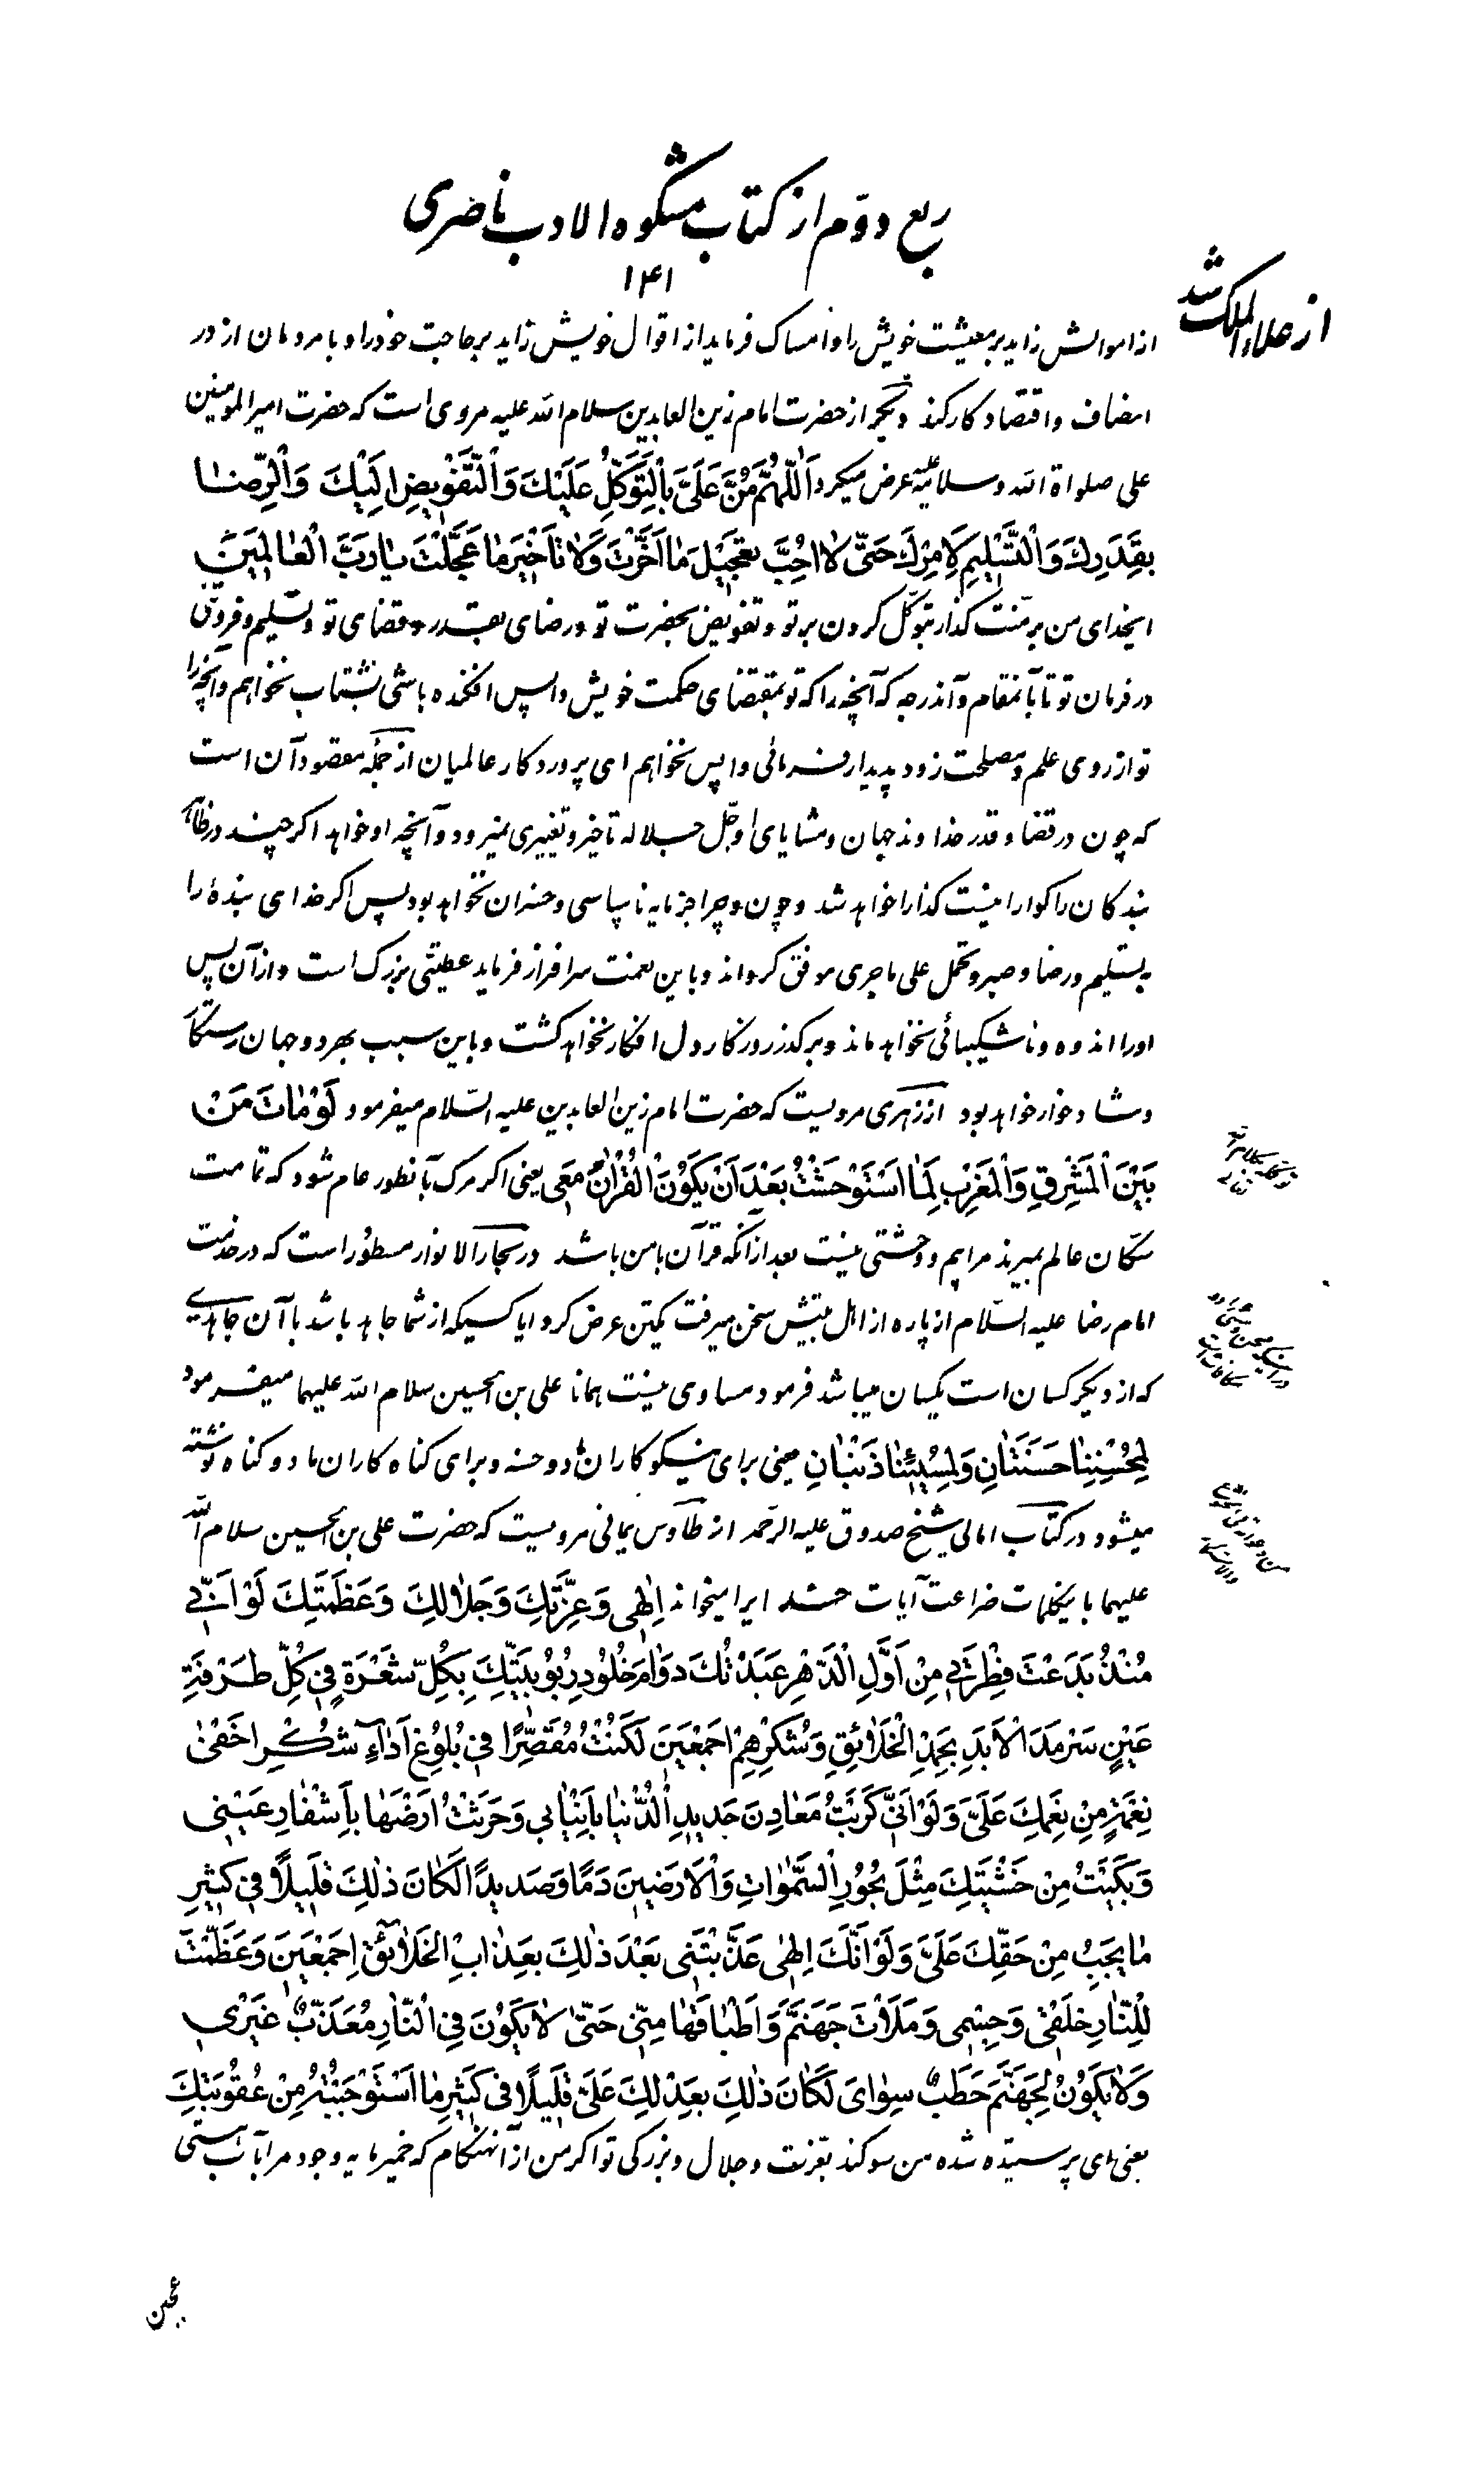 ربع دوّم از کتاب مشکوه الادب ناصری
۱۴۱
از علاء الملک شد
از اموالش زاید بر معیشت خویش را و امساک فرماید از اقوال خویش زاید بر حاجت خود را و با مردمان از در
انصاف و اقتصاد کار کند دیگر از حضرت امام زین العابدین سلام الله علیه مروی است که حضرت امیر المومنین
علی صلواة الله و سلامه علیه عرض میکرد اَللّٰهُمَّ مُنَّ عَلَیَّ بِالتَّوَکُّلِ عَلَیْكَ وَالتَّفْویضِ اِلَیْكَ وَالرِّضٰا
بِقَدَرِكَ وَالتَّسْلیمِ لِاَمْرِكَ حَتّیٰ لٰا اُحِبَّ تَعْجیلَ مٰا اَخَّرْتَ وَلٰا تَأخیرَ مٰا عَجَّلْتَ یٰا رَبَّ الْعٰالَمینَ
ایخدای من بر منت گذار بتوکّل کردن بر تو و تفویض بحضرت تو و رضای بقدر و قضای تو و تسلیم و فروتنی
در فرمان تو تا بآنمقام و آندرجه که آنچه را که تو بمقتضای حکمت خویش واپس افکنده باشی بشتاب نخواهم و آنچه را
تو از روی علم و مصلحت زود پدیدار فرمائی واپس نخواهم ای پروردکار عالمیان از جمله مقصود آن است
که چون در قضا و قدر خداوند جهان و مشایای او جلّ جلاله تاخیر و تغییری نمیرود و آنچه او خواهد اکر چند در ظاهر
بندکان را کوارا نیست کذارا خواهد شد و چون و چرا جز مایه ناسپاسی و خسران نخواهد بود پس اکر خدای بندهٔ را
بتسلیم و رضا و صبر و تحمل علی ماجری موفق کرداند و باین نعمت سرافراز فرماید عطیتی بزرک است و از آن پس
او را اندوه و ناشکیبائی نخواهد ماند و بر کذر روزکار دل افکار نخواهد کشت و باین سبب بهر دو جهان رستکار
و شادخوار خواهد بود از زهری مرویست که حضرت امام زین العابدین علیه السّلام میفرمود لَوْ مٰاتَ مَنْ
بَیْنَ الْمَشْرِقِ وَالْمَغْرِبِ لَمَا اسْتَوْحَشْتُ بَعْدَ اَنْ یَکُونَ الْقُرْاٰنُ مَعی یعنی اکر مرک بآنطور عام شود که تمامت
سکّان عالم بمیرند مرا بیم و وحشتی نیست بعد از آنکه قرآن با من باشد در بحار الانوار مسطور است که در خدمت
امام رضا علیه السّلام از پاره از اهل بیتش سخن میرفت یکتن عرض کرد ایا کسیکه از شما جاهد باشد با آن جاهدی
که از دیکر کسان است یکسان میباشد فرمود مساوی نیست همانا علی بن الحسین سلام الله علیهما میفرمود
لِمُحْسِنِنٰا حَسَنَتٰانِ وَلِمُسیئِنٰا ذَنْبٰانِ یعنی برای نیکوکاران ما دو حسنه و برای کناه کاران ما دو کناه نوشته
میشود در کتاب امالی شیخ صدوق علیه الرّحمه از طاوس یمانی مرویست که حضرت علی بن الحسین سلام الله
علیهما باینکلمات ضراعت آیات خدایرا میخواند اِلٰهی وَعِزَّتِكَ وَجَلٰالِكَ وَعَظَمَتِكَ لَوْ اَنّی
مُنْذُ بَدَعْتَ فِطْرَتی مِنْ اَوَّلِ الدَّهْرِ عَبَدْتُكَ دَوٰامَ خُلُودِ رُبُوبِیَّتِكَ بِکُلِّ شَعْرَةٍ فی کُلِّ طَرْفَةِ
عَیْنٍ سَرْمَدَ الْاَبَدِ بِحَمْدِ الْخَلٰائِقِ وَشُکْرِهِمْ اَجْمَعینَ لَکُنْتُ مُقَصِّرًا فی بُلُوغِ اَدٰاءِ شُکْرِ اَخْفیٰ
نِعْمَةٍ مِنْ نِعَمِكَ عَلَیَّ وَلَوْ اَنّی کَرَبْتُ مَعٰادِنَ حَدیدِ الدُّنْیٰا بِاَنْیٰابی وَحَرَثْتُ اَرَضَهٰا بِاَشْفٰارِ عَیْنی
وَبَکَیْتُ مِنْ خَشْیَتِكَ مِثْلَ بُحُورِ السَّمٰوٰاتِ وَالْاَرَضینَ دَمًا وَصَدیدًا لَکٰانَ ذٰلِكَ قَلیلًا فی کَثیرِ
مٰا یَجِبُ مِنْ حَقِّكَ عَلَیَّ وَلَوْ اَنَّكَ اِلٰهی عَذَّبْتَنی بَعْدَ ذٰلِكَ بِعَذٰابِ الْخَلٰائِقِ اَجْمَعینَ وَعَظَّمْتَ
لِلنّٰارِ خَلْقی وَجِسْمی وَمَلَأْتَ جَهَنَّمَ وَاَطْبٰاقَهٰا مِنّی حَتّیٰ لٰا یَکُونَ فِی النّٰارِ مُعَذَّبٌ غَیْری
وَلٰا یَکُونُ لِجَهَنَّمَ حَطَبٌ سِوٰایَ لَکٰانَ ذٰلِكَ بِعَدْلِكَ عَلَیَّ قَلیلًا فی کَثیرِ مَا اسْتَوْجَبْتُهُ مِنْ عُقُوبَتِكَ
یعنی ای پرستیده شده من سوکند بعزّت و جلال و بزرکی تو اکر من از آنهنکام که خمیر مایه وجود مرا بآب هستی
عجین